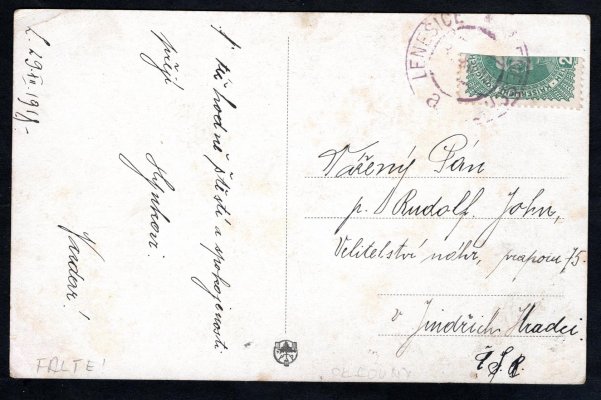 L. 29. XII. 1918.
hodně štěstí a spokojenosti
přejí
Nazdar!
LENEŠICE
a
2
Vážený Pán
p. Rudolf John,
Velitelství náhr. praporu 75.
v Jindřich. Hradci
Č.S.R.
FALTE!